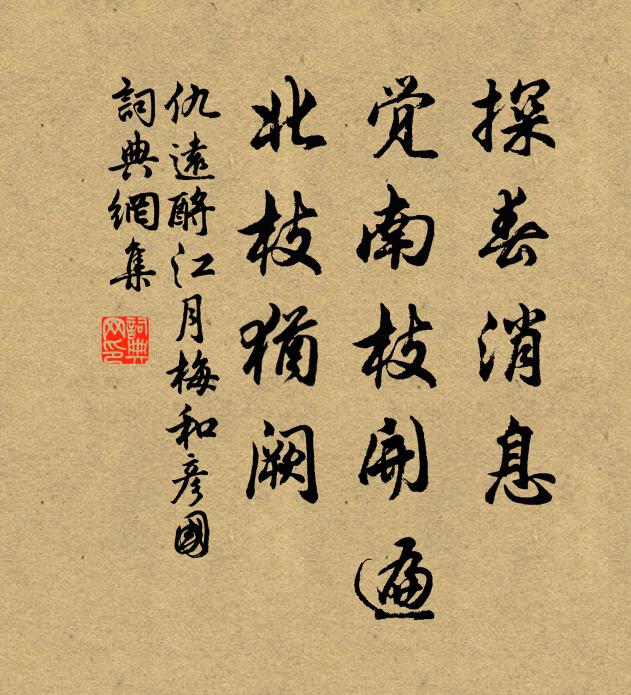 探春消息
觉南枝開遍
北枝猶阙
仇遠酹江月梅和彦國
詞典網集
詞典網印